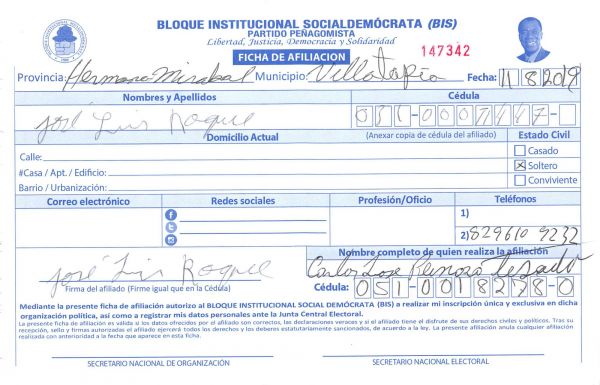 BLOQUE INSTITUCIONAL SOCIALDEMÓCRATA (BIS)
PARTIDO PEÑAGOMISTA
Libertad, Justicia, Democracia y Solidaridad
FICHA DE AFILIACION
147342
Provincia: Hermana Mirabal Municipio: Villa Tapia Fecha: 11 8 2019
Nombres y Apellidos Cédula
José Luis Roque
Domicilio Actual (Anexar copia de cédula del afiliado) Estado Civil
Calle: Casado
#Casa / Apt. / Edificio: Soltero
Barrio / Urbanización: Conviviente
Correo electrónico Redes sociales Profesión/Oficio Teléfonos
1)
2) 829610 9232
Nombre completo de quien realiza la afiliación
José Luis Roque Carlos Jose Tejada
Firma del afiliado (Firme igual que en la Cédula) Cédula: 051-0018278-0
Mediante la presente ficha de afiliación autorizo al BLOQUE INSTITUCIONAL SOCIAL DEMÓCRATA (BIS) a realizar mi inscripción única y exclusiva en dicha
organización política, así como a registrar mis datos personales ante la Junta Central Electoral.
La presente ficha de afiliación es valida si los datos ofrecidos por el afiliado son correctos, las declaraciones veraces y si el afiliado tiene el disfrute de sus derechos civiles y políticos. Tras su
recepción, sello y firmas autorizadas el afiliado ejercerá todos los derechos y los deberes estatutariamente sancionados, de acuerdo a la ley. La presente afiliación anula cualquier afiliación
realizada con anterioridad a la fecha que aparece en esta ficha.
SECRETARIO NACIONAL DE ORGANIZACIÓN SECRETARIO NACIONAL ELECTORAL